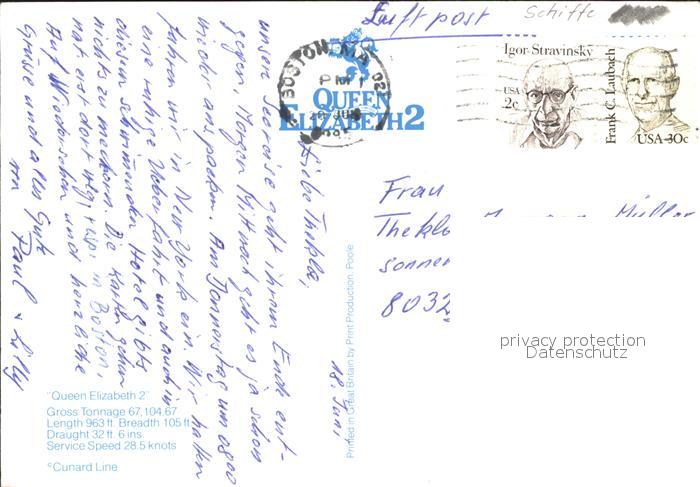 Luftpost
Schiffe
BOSTON, MA 02
PM
QUEEN
ELIZABETH 2
Igor Stravinsky
USA
2c
Frank C. Laubach
USA 30c
18. Juni
Liebe Thekla,
unsere Seereise geht ihrem Ende ent-
gegen. Morgen Mittwoch geht es ja schon
wieder ans packen. Am Donnerstag um 0800
fahren wir in New York ein. Wir hatten
eine ruhige Ueberfahrt und auch in
diesem schwimmenden Hotel gibts
nichts zu meckern. Die Karte gehen
erst dort weg, resp. in Boston.
Auf Wiedersehen und herzliche
Grüsse und alles Gute
von Paul + Lilly
Frau
Thekla Müller
Sonnen
8032
privacy protection
Datenschutz
"Queen Elizabeth 2"
Gross Tonnage 67,104.67
Length 963 ft. Breadth 105 ft
Draught 32 ft. 6 ins.
Service Speed 28.5 knots
©Cunard Line
Printed in Great Britain by Print Production, Poole